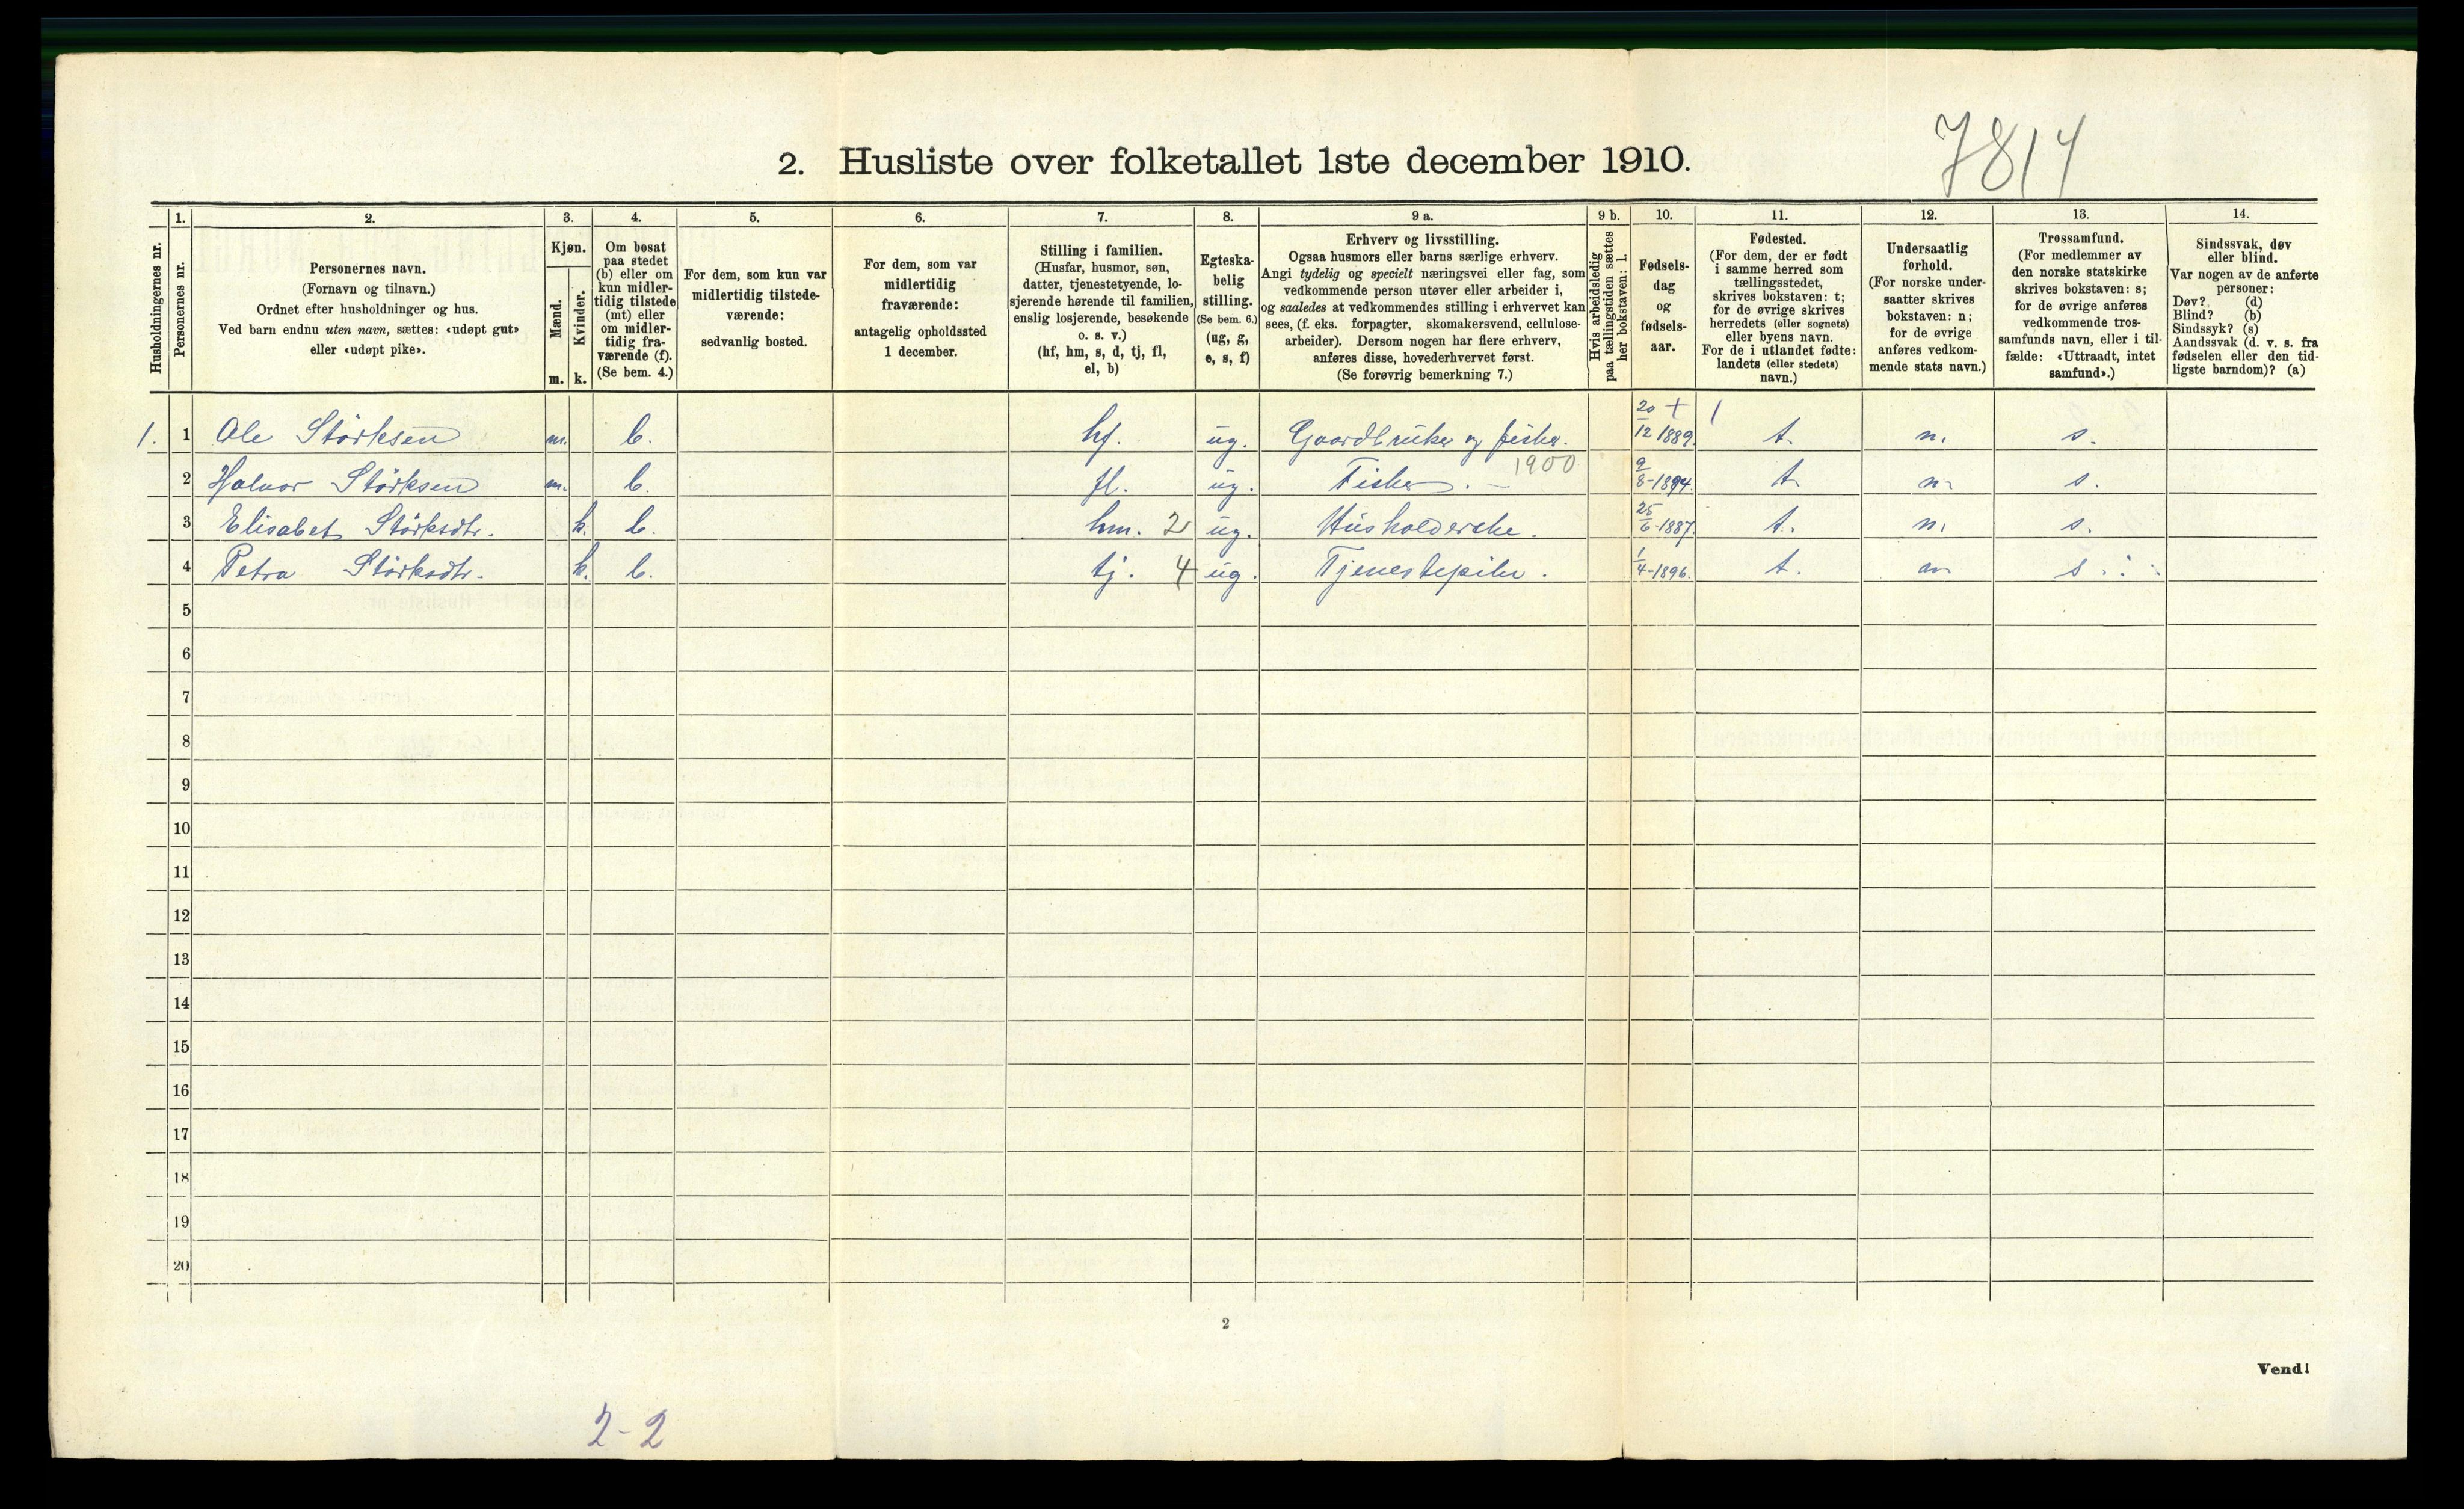 7814
2. Husliste over folketallet 1ste december 1910.
Husholdningernes nr.
1.
Personernes nr.
2.
Personernes navn.
(Fornavn og tilnavn.)
Ordnet efter husholdninger og hus.
Ved barn endnu uten navn, sættes: «udøpt gut»
eller «udøpt pike».
3.
Kjøn.
Mænd.
m.
Kvinder.
k.
4.
Om bosat
paa stedet
(b) eller om
kun midler-
tidig tilstede
(mt) eller
om midler-
tidig fra-
værende (f).
(Se bem. 4.)
5.
For dem, som kun var
midlertidig tilstede-
værende:
sedvanlig bosted.
6.
For dem, som var
midlertidig
fraværende:
antagelig opholdssted
1 december.
7.
Stilling i familien.
(Husfar, husmor, søn,
datter, tjenestetyende, lo-
sjerende hørende til familien,
enslig losjerende, besøkende
o. s. v.)
(hf, hm, s, d, tj, fl,
el, b)
8.
Egteska-
belig
stilling.
(Se bem. 6.)
(ug, g,
e, s, f)
9 a.
Erhverv og livsstilling.
Ogsaa husmors eller barns særlige erhverv.
Angi tydelig og specielt næringsvei eller fag, som
vedkommende person utøver eller arbeider i,
og saaledes at vedkommendes stilling i erhvervet kan
sees, (f. eks. forpagter, skomakersvend, cellulose-
arbeider). Dersom nogen har flere erhverv,
anføres disse, hovederhvervet først.
(Se forøvrig bemerkning 7.)
9 b.
Hvis arbeidsledig
paa tællingstiden sættes
her bokstaven: l.
10.
Fødsels-
dag
og
fødsels-
aar.
11.
Fødested.
(For dem, der er født
i samme herred som
tællingsstedet,
skrives bokstaven: t;
for de øvrige skrives
herredets (eller sognets)
eller byens navn.
For de i utlandet fødte:
landets (eller stedets)
navn.)
12.
Undersaatlig
forhold.
(For norske under-
saatter skrives
bokstaven: n;
for de øvrige
anføres vedkom-
mende stats navn.)
13.
Trossamfund.
(For medlemmer av
den norske statskirke
skrives bokstaven: s;
for de øvrige anføres
vedkommende tros-
samfunds navn, eller i til-
fælde: «Uttraadt, intet
samfund».)
14.
Sindssvak, døv
eller blind.
Var nogen av de anførte
personer:
Døv? (d)
Blind? (b)
Sindssyk? (s)
Aandssvak (d. v. s. fra
fødselen eller den tid-
ligste barndom)? (a)
1. 1 Ole Størksen m. b. hf. ug. Gaardbruker og fisker. 20/12 1889. t. n. s.
2 Halvor Størksen m. b. fl. ug. Fisker. 1900 9/8-1894. t. n. s.
3 Elisabet Størksdtr. k. b. hm. 2 ug. Husholderske. 25/6-1887. t. n. s.
4 Petra Størksdtr. k. b. tj. 4 ug. Tjenestepike. 1/4-1896. t. n s.
5
6
7
8
9
10
11
12
13
14
15
16
17
18
19
20
2
Vend!
2-2